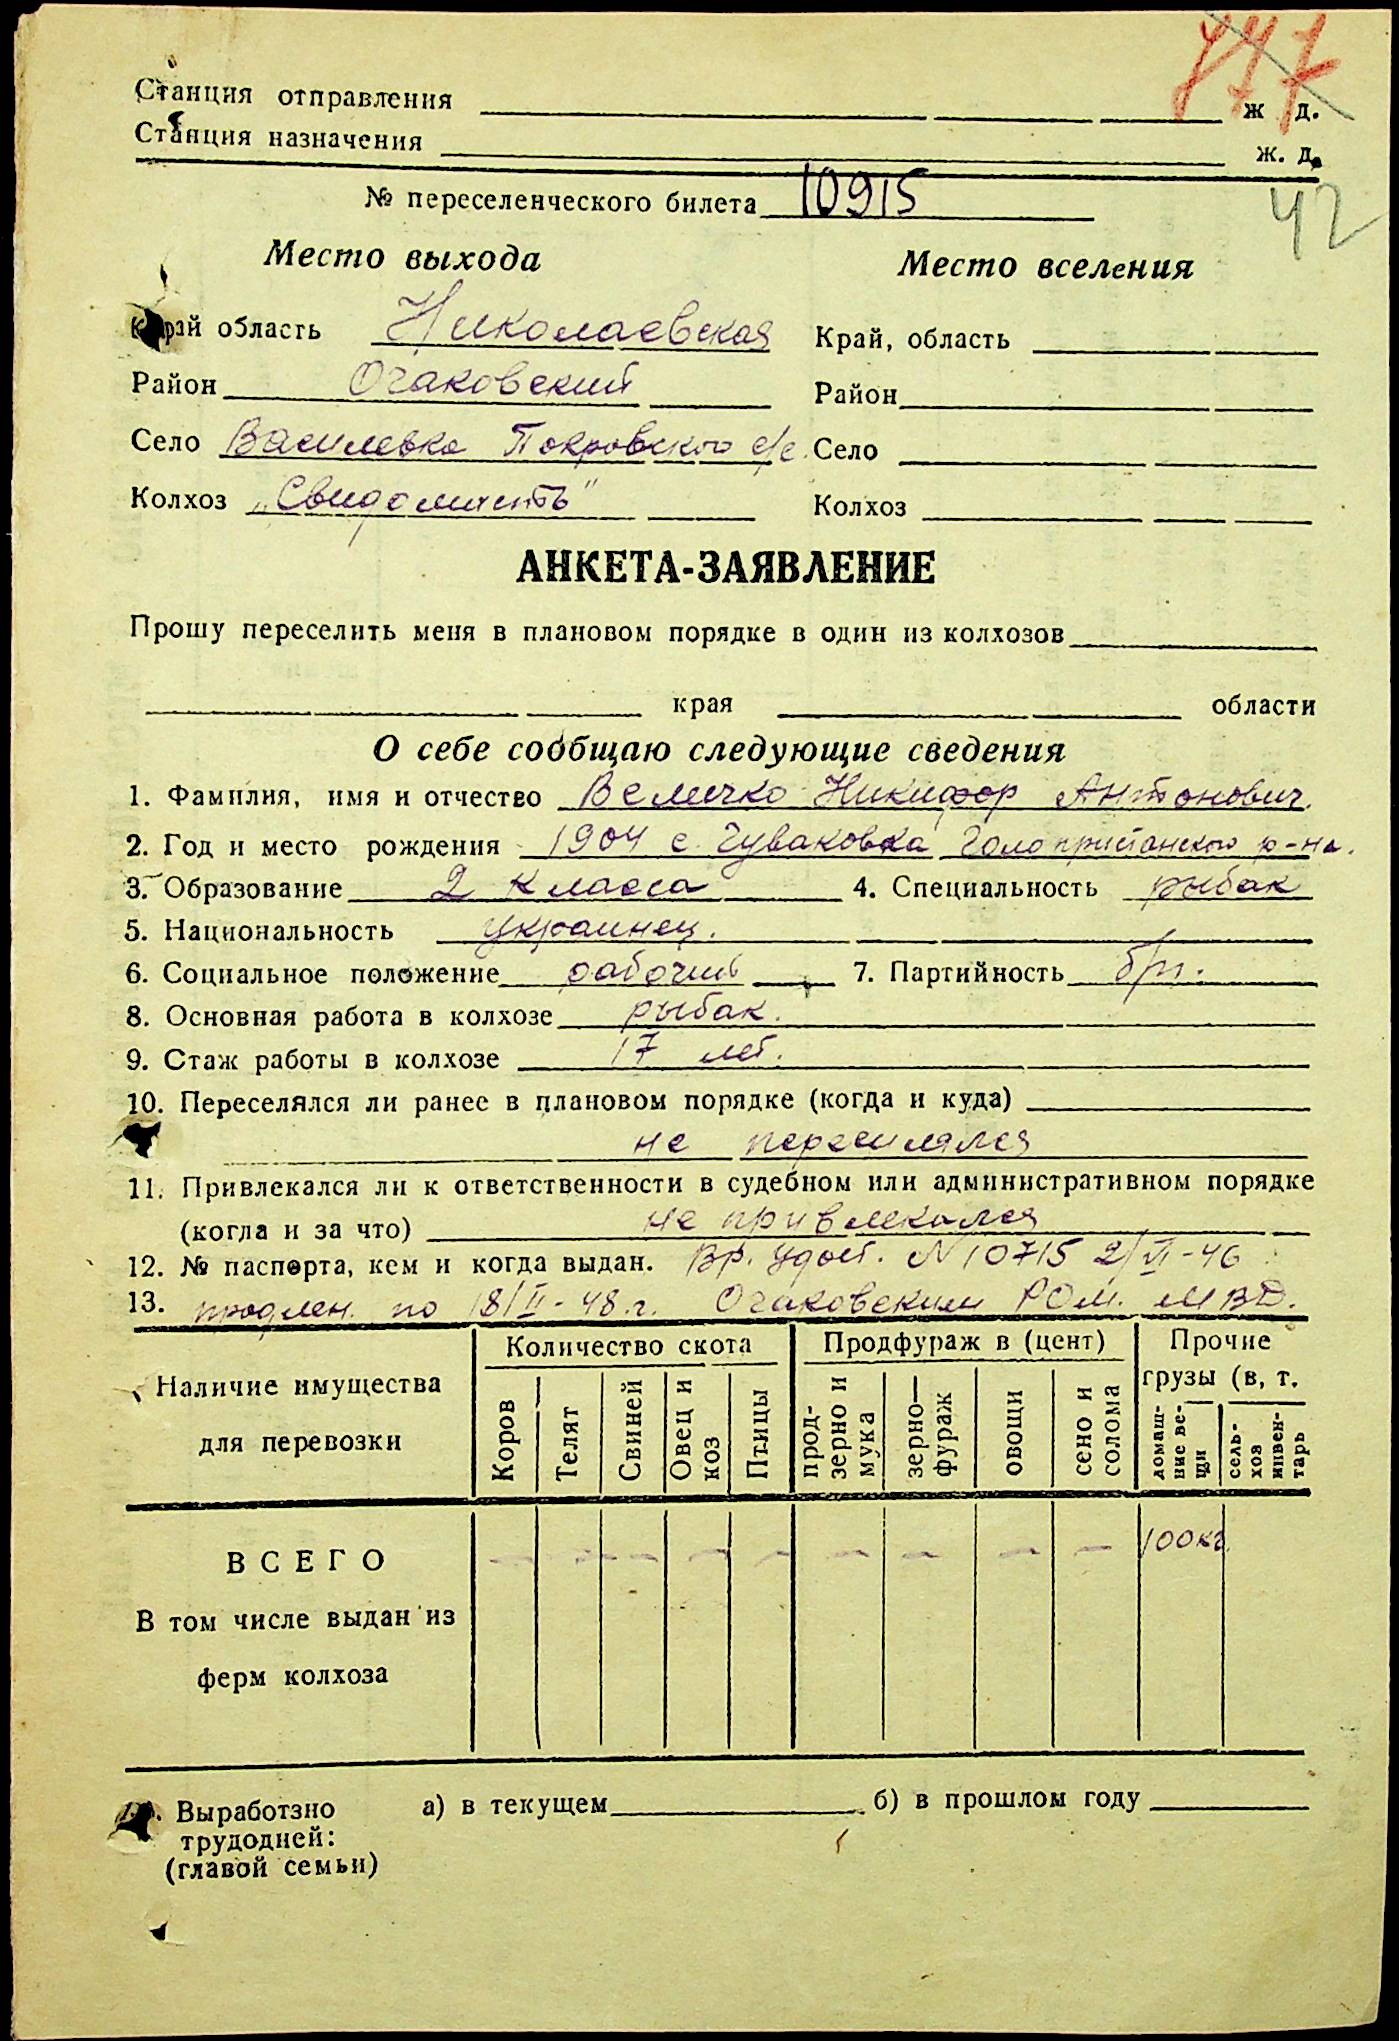 747
Станция отправления ж д.
Станция назначения ж. д.
42
№ переселенческого билета 10915
Место выхода
Место вселения
Край область Николаевская
Край, область
Район Очаковский
Район
Село Василевка Покровского с/с.
Село
Колхоз „Свидомисть"
Колхоз
АНКЕТА-ЗАЯВЛЕНИЕ
Прошу переселить меня в плановом порядке в один из колхозов
края области
О себе сообщаю следующие сведения
1. Фамилия, имя и отчество Величко Никифор Антонович.
2. Год и место рождения 1904 с. Чуваковка Голопристанского р-на.
3. Образование 2 класса 4. Специальность рыбак
5. Национальность украинец.
6. Социальное положение рабочий 7. Партийность б/п.
8. Основная работа в колхозе рыбак.
9. Стаж работы в колхозе 17 лет.
10. Переселялся ли ранее в плановом порядке (когда и куда)
не переселялся
11. Привлекался ли к ответственности в судебном или административном порядке
(когла и за что) не привлекался
12. № паспорта, кем и когда выдан. Вр. удост. N 10715 2/VI-46
13. продлен. по 18/II-48.г. Очаковским РОМ. МВД.
Наличие имущества
для перевозки
Количество скота
Продфураж в (цент)
Прочие
грузы (в, т.
Коров
Телят
Свиней
Овец и
коз
Птицы
прод-
зерно и
мука
зерно—
фураж
овощи
сено и
солома
домаш-
ние ве-
щи
сель-
хоз
инвен-
тарь
ВСЕГО — — — — — — — — — 100кг.
В том числе выдан из
ферм колхоза
Выработзно а) в текущем б) в прошлом году
трудодней:
(главой семьи)